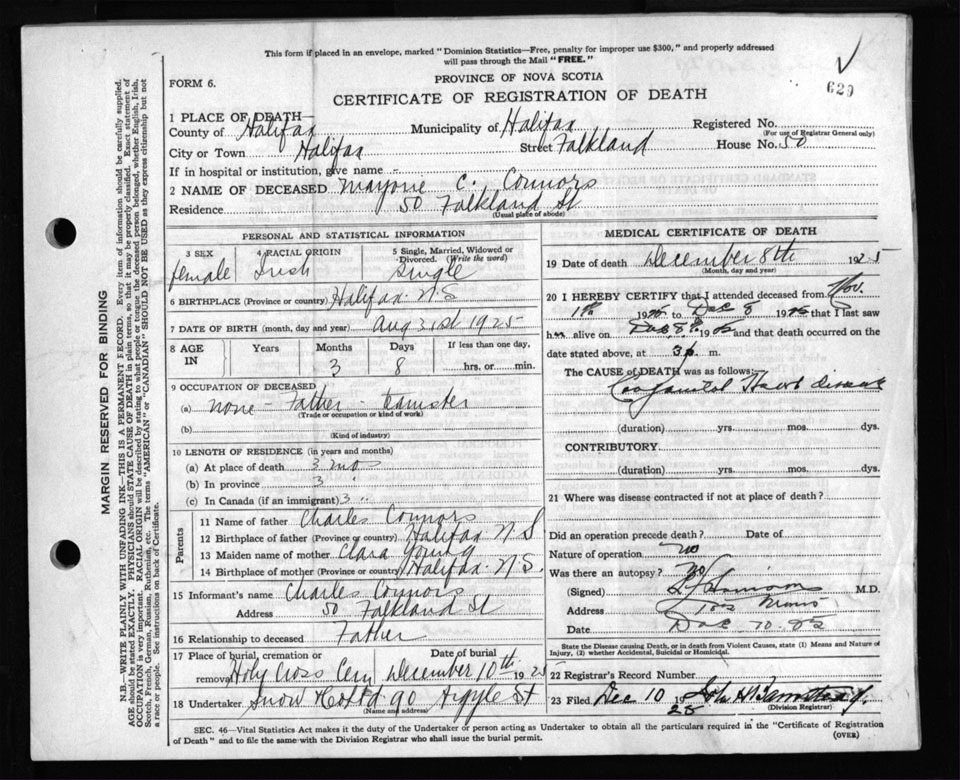 This form if placed in an envelope, marked "Dominion Statistics—Free, penalty for improper use $300," and properly addressed
will pass through the Mail "FREE."
FORM 6.
PROVINCE OF NOVA SCOTIA
629
CERTIFICATE OF REGISTRATION OF DEATH
1 PLACE OF DEATH—
County of Halifax Municipality of Halifax Registered No.
(For use of Registrar General only)
City or Town Halifax Street Falkland House No. 50
If in hospital or institution, give name -
2 NAME OF DECEASED Marjorie C. Connors
Residence 50 Falkland St
(Usual place of abode)
PERSONAL AND STATISTICAL INFORMATION
3 SEX female
4 RACIAL ORIGIN Irish
5 Single, Married, Widowed or Divorced. (Write the word) Single
6 BIRTHPLACE (Province or country) Halifax N.S
7 DATE OF BIRTH (month, day and year) Aug 31st 1925
8 AGE IN Years Months 3 Days 8 If less than one day, hrs. or min.
9 OCCUPATION OF DECEASED
(a) none - Father - teamster
(Trade or occupation or kind of work)
(b)
(Kind of industry)
10 LENGTH OF RESIDENCE (in years and months)
(a) At place of death 3 mos
(b) In province 3 "
(c) In Canada (if an immigrant) 3 "
Parents
11 Name of father Charles Connors
12 Birthplace of father (Province or country) Halifax N.S
13 Maiden name of mother Clara Young
14 Birthplace of mother (Province or country) Halifax N.S.
15 Informant's name Charles Connors
Address 50 Falkland St
16 Relationship to deceased Father
17 Place of burial, cremation or removal Holy Cross Cem Date of burial December 10th 1925
18 Undertaker Snow & Co Ltd 90 Argyle St
(Name and address)
MEDICAL CERTIFICATE OF DEATH
19 Date of death December 8th 1925
(Month, day and year)
20 I HEREBY CERTIFY that I attended deceased from Nov.
1925 to Dec 8 1925 that I last saw
her alive on Dec 8th 1925 and that death occurred on
date stated above, at 3 p m.
The CAUSE OF DEATH was as follows:
Congenital Heart disease
(duration) yrs. mos. dys.
CONTRIBUTORY
(duration) yrs. mos. dys.
21 Where was disease contracted if not at place of death?
Did an operation precede death? Date of
Nature of operation no
Was there an autopsy? no
(Signed) M.D.
Address Morris
Date Dec 10 25
State the Disease causing Death, or in death from Violent Causes, state (1) Means and Nature of
Injury, (2) whether Accidental, Suicidal or Homicidal.
22 Registrar's Record Number
23 Filed Dec 10 1925 John A
(Division Registrar)
SEC. 46—Vital Statistics Act makes it the duty of the Undertaker or person acting as Undertaker to obtain all the particulars required in the "Certificate of Registration
of Death" and to file the same with the Division Registrar who shall issue the burial permit.
(OVER)
MARGIN RESERVED FOR BINDING
N.B.—WRITE PLAINLY WITH UNFADING INK—THIS IS A PERMANENT RECORD. Every item of information should be carefully supplied.
AGE should be stated EXACTLY. PHYSICIANS should STATE CAUSE OF DEATH in plain terms, so that it may be properly classified. Exact statement of
OCCUPATION is very important. RACIAL ORIGIN will be described by stating to what people or tongue the deceased person belonged, whether English, Irish,
Scotch, French, German, Russian, Ruthenian, etc. The terms "AMERICAN" or "CANADIAN" SHOULD NOT BE USED as they express citizenship but not
a race or people. See instructions on back of Certificate.